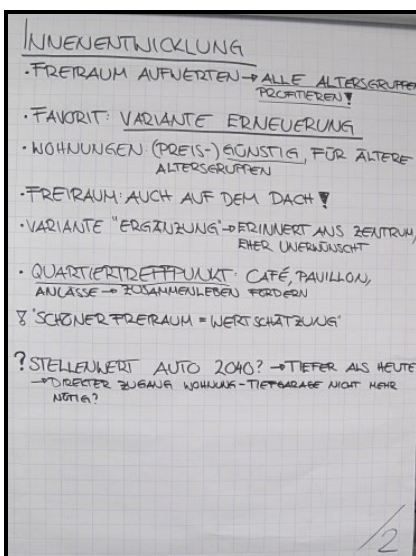 INNENENTWICKLUNG
• FREIRAUM AUFWERTEN → ALLE ALTERSGRUPPEN
PROFITIEREN!
• FAVORIT: VARIANTE ERNEUERUNG
• WOHNUNGEN: (PREIS-) GÜNSTIG, FÜR ÄLTERE
ALTERSGRUPPEN
• FREIRAUM: AUCH AUF DEM DACH!
• VARIANTE "ERGÄNZUNG" → ERINNERT ANS ZENTRUM,
EHER UNERWÜNSCHT
• QUARTIERTREFFPUNKT: CAFÉ, PAVILLON,
ANLÄSSE → ZUSAMMENLEBEN FÖRDERN
"SCHÖNER FREIRAUM = WERTSCHÄTZUNG"
? STELLENWERT AUTO 2040? → TIEFER ALS HEUTE
→ DIREKTER ZUGANG WOHNUNG - TIEFGARAGE NICHT MEHR
NÖTIG?
/2